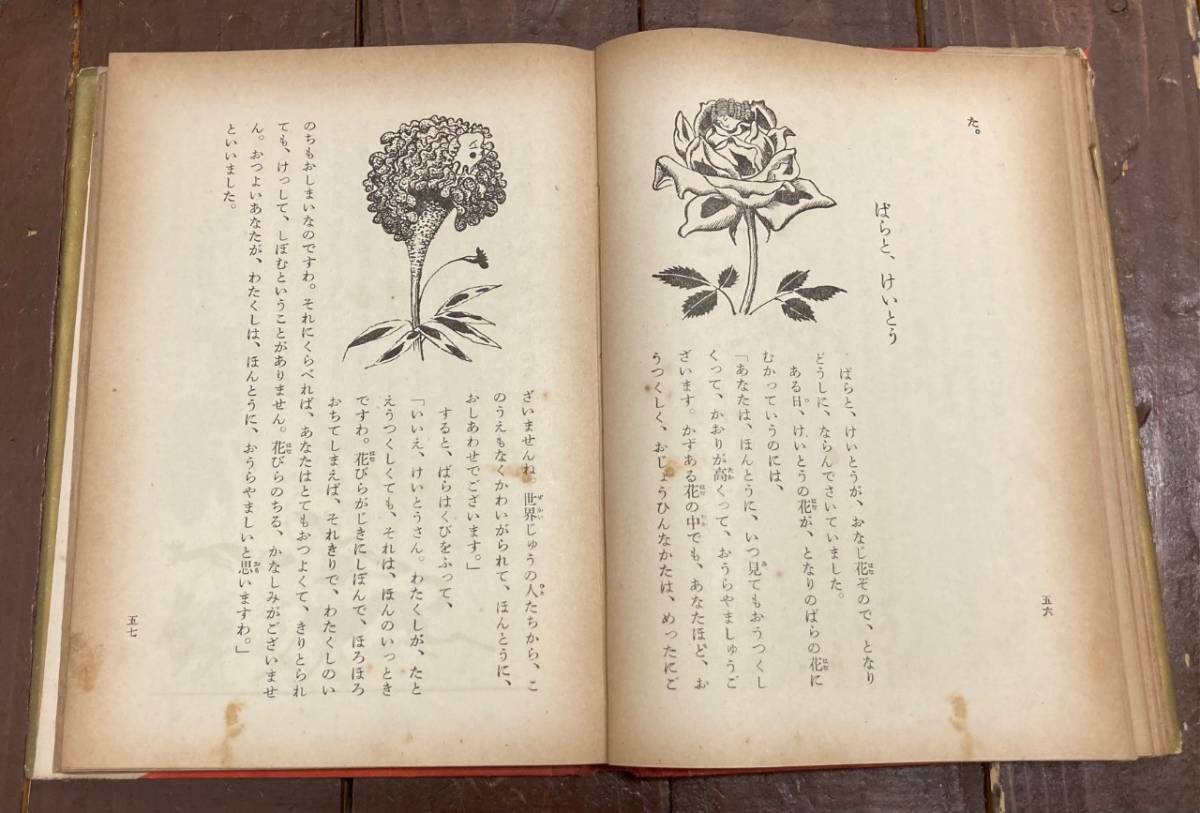 た。
ばらと、けいとう
ばらと、けいとうが、おなじ花ぞので、となり
どうしに、ならんでさいていました。
ある日、けいとうの花が、となりのばらの花に
むかっていうのには、
「あなたは、ほんとうに、いつ見てもおうつくし
くって、かおりが高くって、おうらやましゅうご
ざいます。かずある花の中でも、あなたほど、お
うつくしく、おじょうひんなかたは、めったにご
五六
ざいませんね。世界じゅうの人たちから、こ
のうえもなくかわいがられて、ほんとうに、
おしあわせでございます。」
すると、ばらはくびをふって、
「いいえ、けいとうさん。わたくしが、たと
えうつくしくても、それは、ほんのいっとき
ですわ。花びらがじきにしぼんで、ほろほろ
おちてしまえば、それきりで、わたくしのい
のちもおしまいなのですわ。それにくらべれば、あなたはとてもおつよくて、きりとられ
ても、けっして、しぼむということがありません。花びらのちる、かなしみがございませ
ん。おつよいあなたが、わたくしは、ほんとうに、おうらやましいと思いますわ。」
といいました。
五七